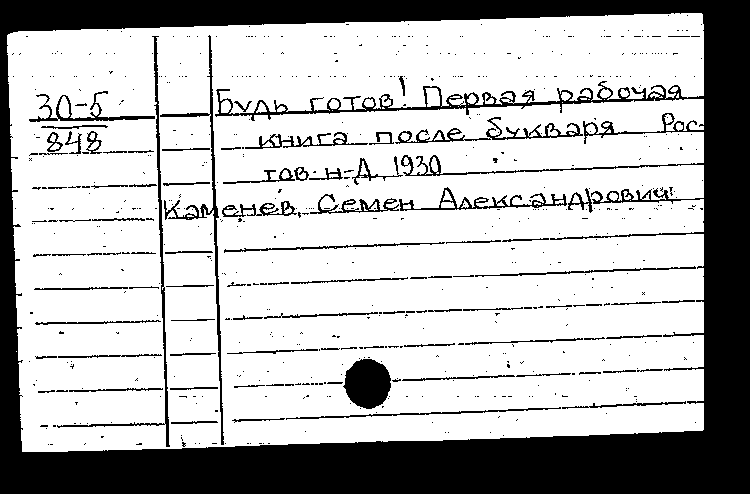 30-5
848
Будь готов! Первая рабочая
книга после букваря Рос-
тов-н-Д, 1930
Каменев, Семен Александрович